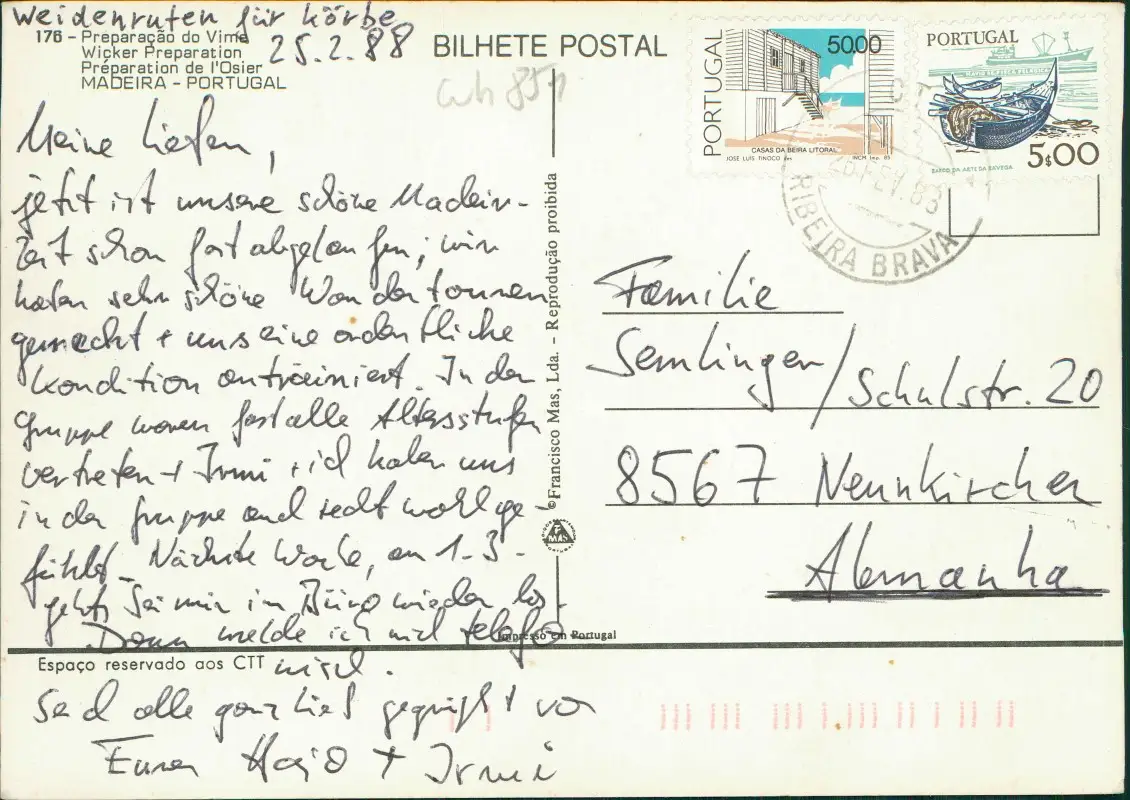 Weidenruten für Körbe
25.2.88
176 - Preparação do Vime
Wicker Preparation
Préparation de l'Osier
MADEIRA - PORTUGAL
BILHETE POSTAL
Meine Lieben,
jetzt ist unsere schöne Madeira-
Zeit schon fast abgelaufen; wir
haben sehr schöne Wandertouren
gemacht + uns eine ordentliche
Kondition antrainiert. In der
Gruppe waren fast alle Altersstufen
vertreten + Irmi + ich haben uns
in der Gruppe auch recht wohl ge-
fühlt. Nächste Woche, am 1.3.
geht's bei mir im Büro wieder los.
Dann melde ich mich telefo-
nisch.
Seid alle ganz lieb gegrüßt von
Euren Hajo + Irmi
© Francisco Mas, Lda. - Reprodução proibida
MAS
Impresso em Portugal
Espaço reservado aos CTT
PORTUGAL
50.00
CASAS DA BEIRA LITORAL
JOSÉ LUIS TINOCO des
INCM Imp. 85
PORTUGAL
5$00
BARCO DA ARTE DA XAVEGA
CTT
FEV. 88
RIBEIRA BRAVA
Familie
Semlinger/Schulstr. 20
8567 Neunkirchen
Alemanha